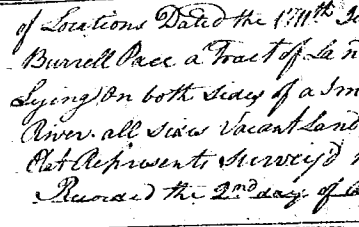 of Locations Dated the
Burrell Pace a Tract of La
Lying On both sides of a Sm
River. all sides Vacant Land
Plat Represents Survey'd
Recorded the 2nd day of